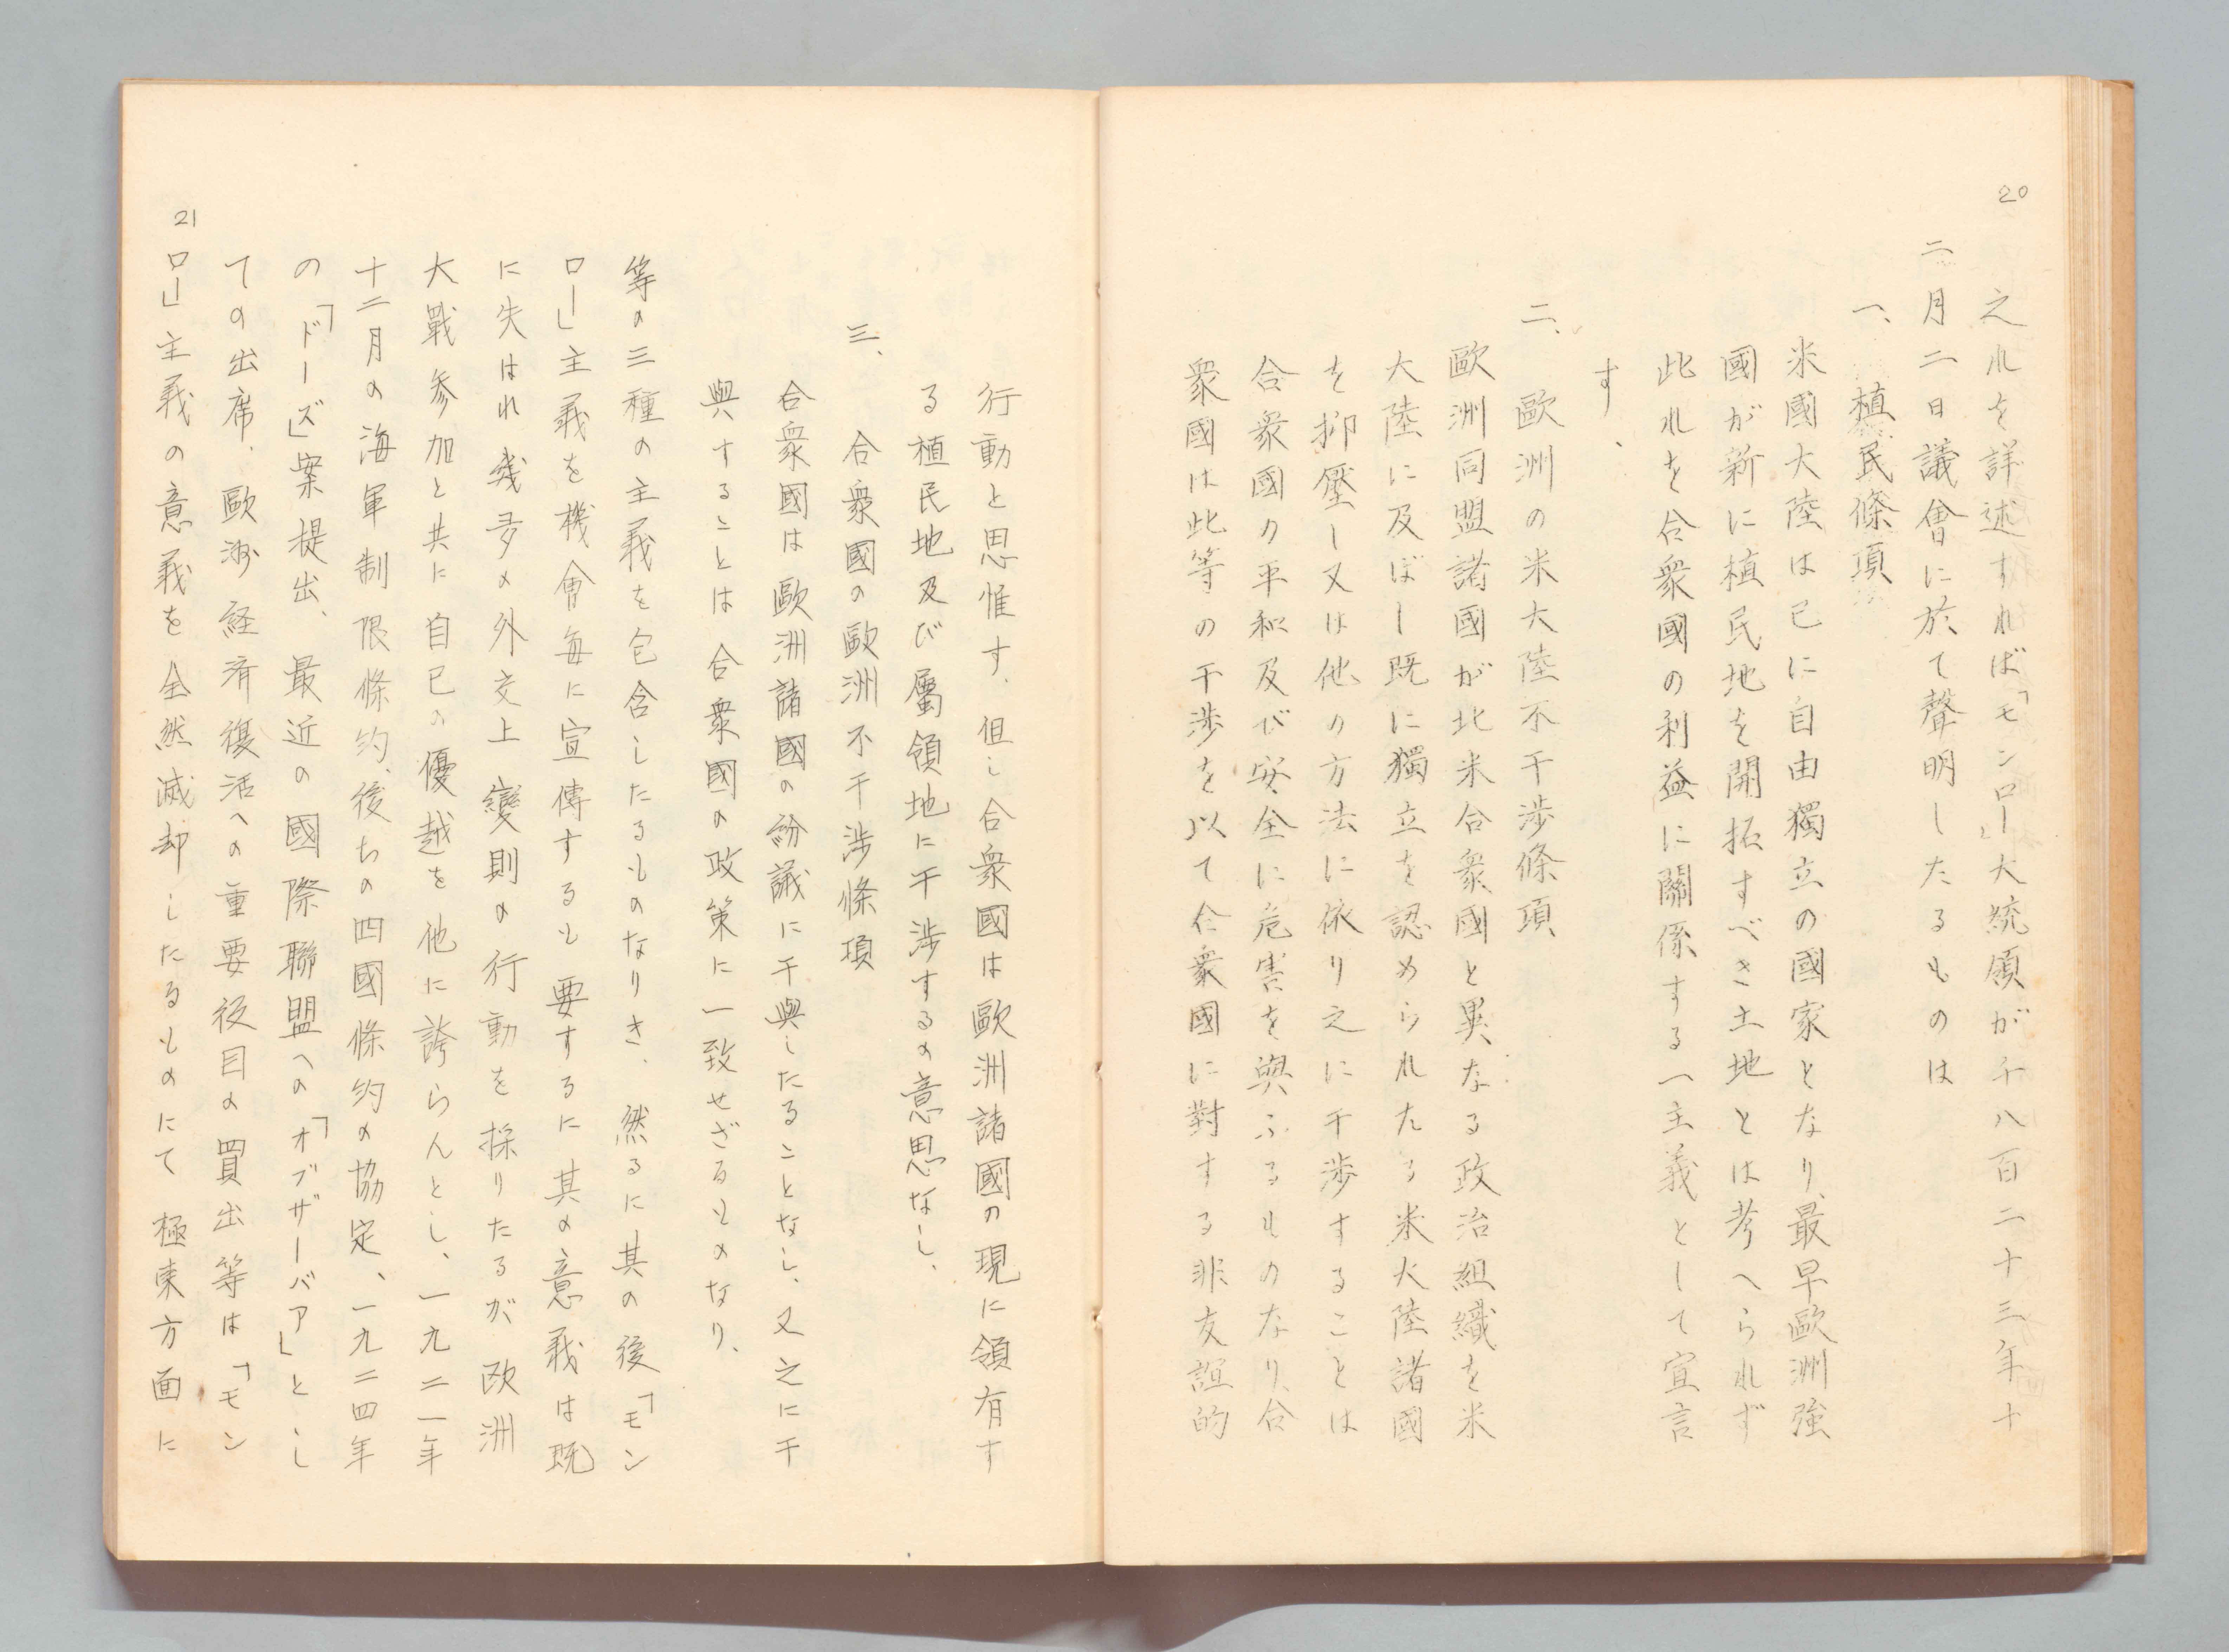 20
之れを詳述すれば「モンロー」大統領が千八百二十三年十
二月二日議會に於て聲明したるものは
一、植民條項
米國大陸は已に自由獨立の國家となり、最早歐洲強
國が新に植民地を開拓すべき土地とは考へられず
此れを合衆國の利益に關係する一主義として宣言
す、
二、歐洲の米大陸不干渉條項
歐洲同盟諸國が北米合衆國と異なる政治組織を米
大陸に及ぼし既に獨立を認められたる米大陸諸國
を抑壓し又は他の方法に依り之に干渉することは
合衆國の平和及び安全に危害を與ふるものなり、合
衆國は此等の干渉を以て合衆國に對する非友誼的
行動と思惟す、但し合衆國は歐洲諸國の現に領有す
る植民地及び屬領地に干渉するの意思なし、
三、合衆國の歐洲不干渉條項
合衆國は歐洲諸國の紛議に干與したることなし、又之に干
與することは合衆國の政策に一致せざるものなり、
等の三種の主義を包含したるものなりき、然るに其の後「モン
ロー」主義を機會毎に宣傳するも要するに其の意義は既
に失はれ幾多の外交上變則の行動を採りたるが欧洲
大戰参加と共に自己の優越を他に誇らんとし、一九二一年
十二月の海軍制限條約、後ちの四國條約の協定、一九二四年
の「ドーズ」案提出、最近の國際聯盟への「オブザーバア」とし
ての出席、歐洲経済復活への重要役目の買出等は「モン
21
ロー」主義の意義を全然滅却したるものにて極東方面に